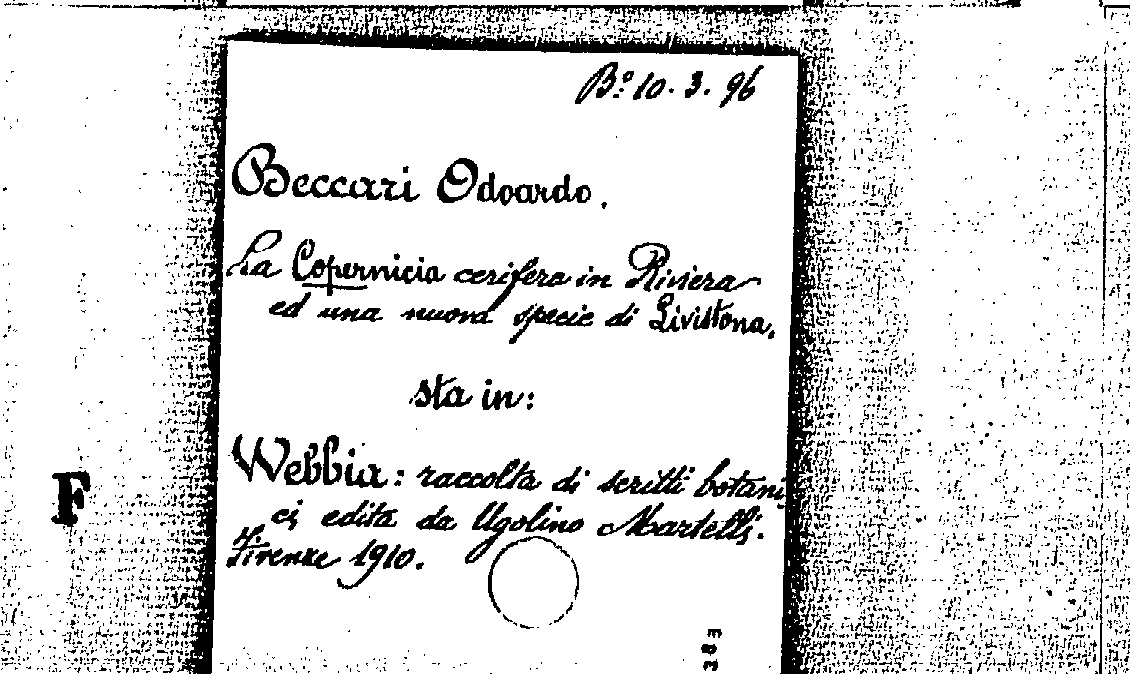 Bº 10. 3. 96
Beccari Odoardo.
La Copernicia cerifera in Riviera
ed una nuova specie di Livistona.
sta in:
Webbia: raccolta di scritti botani
ci edita da Ugolino Martelli.
F
Firenze 1910.